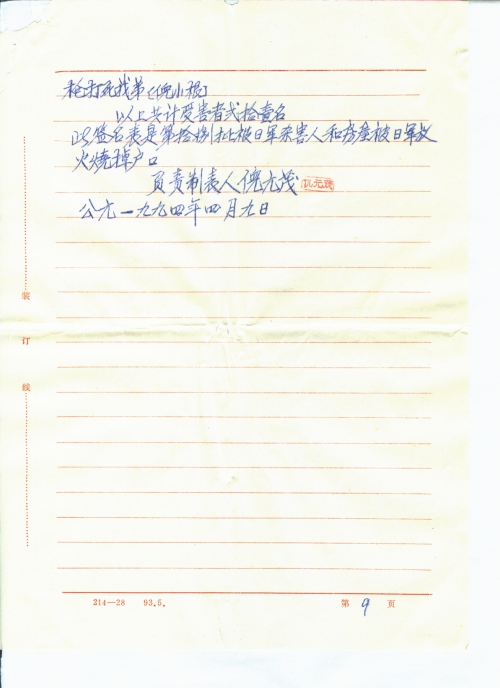 枪打死我弟(倪小根)
以上共计受害者弍拾壹名
此签名表是第拾捌批被日军杀害人和房屋被日军放
火烧掉户口
负责制表人倪允茂
公元一九九四年四月九日
装
订
线
214—28 93.5.
第 9 页